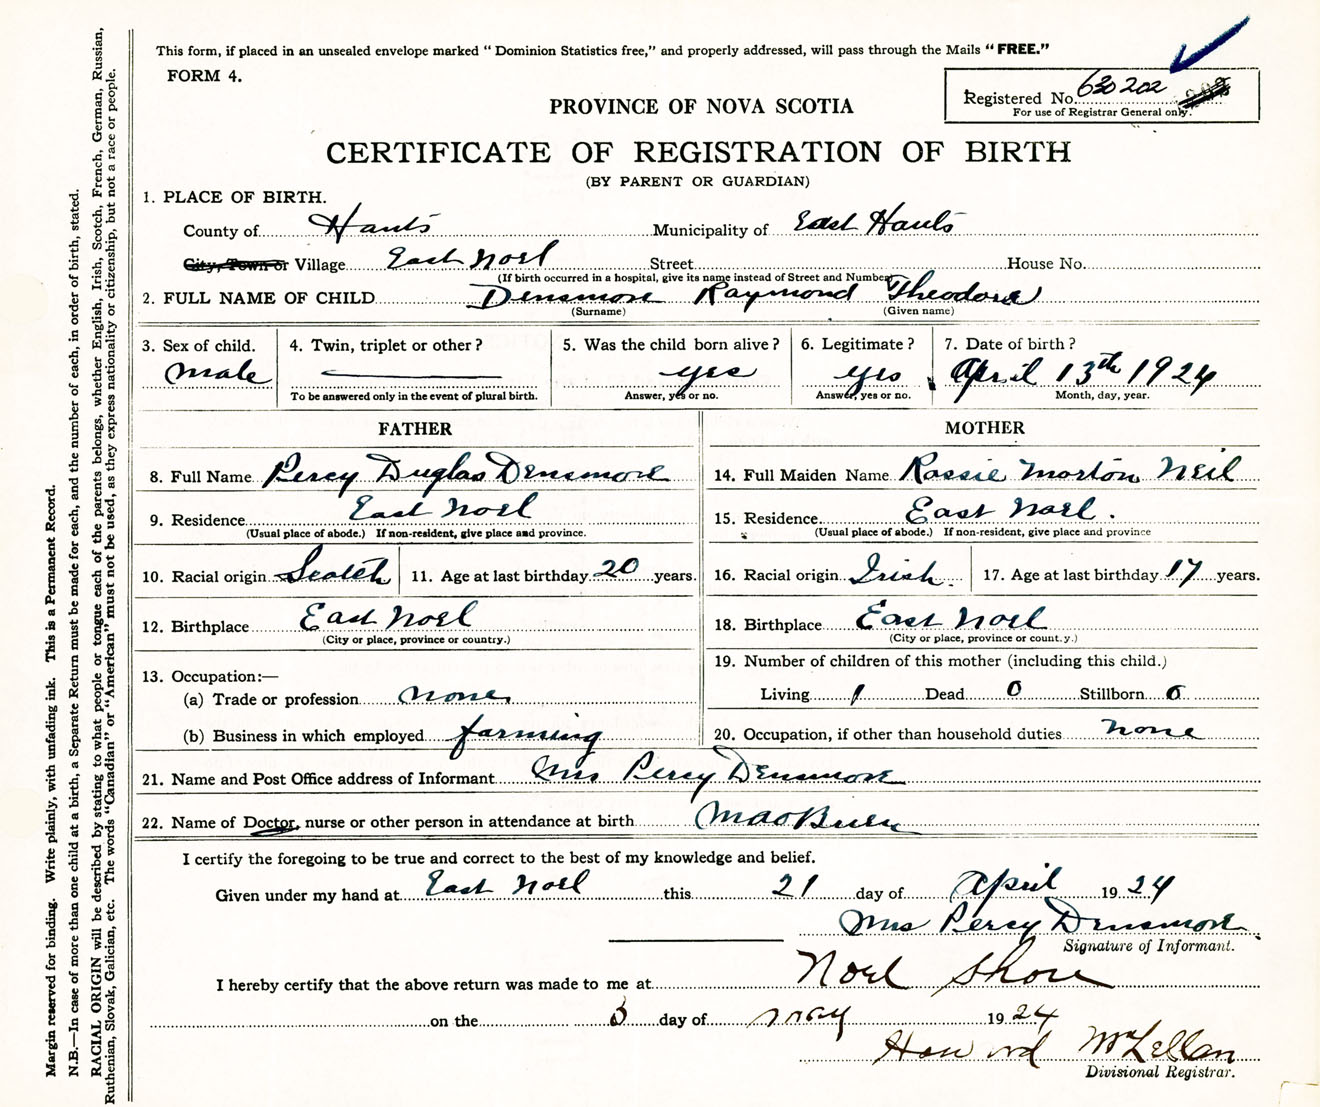 This form, if placed in an unsealed envelope marked "Dominion Statistics free," and properly addressed, will pass through the Mails "FREE."
FORM 4.
Registered No. 630202
For use of Registrar General only.
PROVINCE OF NOVA SCOTIA
CERTIFICATE OF REGISTRATION OF BIRTH
(BY PARENT OR GUARDIAN)
1. PLACE OF BIRTH.
County of Hants Municipality of East Hants
City, Town or Village East Noel Street House No.
(If birth occurred in a hospital, give its name instead of Street and Number)
2. FULL NAME OF CHILD Densmore Raymond Theodore
(Surname) (Given name)
3. Sex of child. 4. Twin, triplet or other? 5. Was the child born alive? 6. Legitimate? 7. Date of birth?
male yes yes April 13th 1924
To be answered only in the event of plural birth. Answer, yes or no. Answer, yes or no. Month, day, year.
FATHER MOTHER
8. Full Name Percy Duglas Densmore 14. Full Maiden Name Rassie Morton Neil
9. Residence East Noel 15. Residence East Noel.
(Usual place of abode.) If non-resident, give place and province. (Usual place of abode.) If non-resident, give place and province
10. Racial origin Scotch 11. Age at last birthday 20 years. 16. Racial origin Irish. 17. Age at last birthday 17 years.
12. Birthplace East Noel 18. Birthplace East Noel
(City or place, province or country.) (City or place, province or count.y.)
13. Occupation:— 19. Number of children of this mother (including this child.)
(a) Trade or profession none Living 1 Dead 0 Stillborn 0
(b) Business in which employed farming 20. Occupation, if other than household duties none
21. Name and Post Office address of Informant Mrs Percy Densmore
22. Name of Doctor, nurse or other person in attendance at birth
I certify the foregoing to be true and correct to the best of my knowledge and belief.
Given under my hand at East Noel this 21 day of April 1924
Mrs Percy Densmore
Signature of Informant.
I hereby certify that the above return was made to me at Noel Shore
on the 3 day of may 1924
Howard McLellan
Divisional Registrar.
Margin reserved for binding. Write plainly, with unfading ink. This is a Permanent Record.
N.B.—In case of more than one child at a birth, a Separate Return must be made for each, and the number of each, in order of birth, stated.
RACIAL ORIGIN will be described by stating to what people or tongue each of the parents belongs, whether English, Irish, Scotch, French, German, Russian,
Ruthenian, Slovak, Galician, etc. The words "Canadian" or "American" must not be used, as they express nationality or citizenship, but not a race or people.